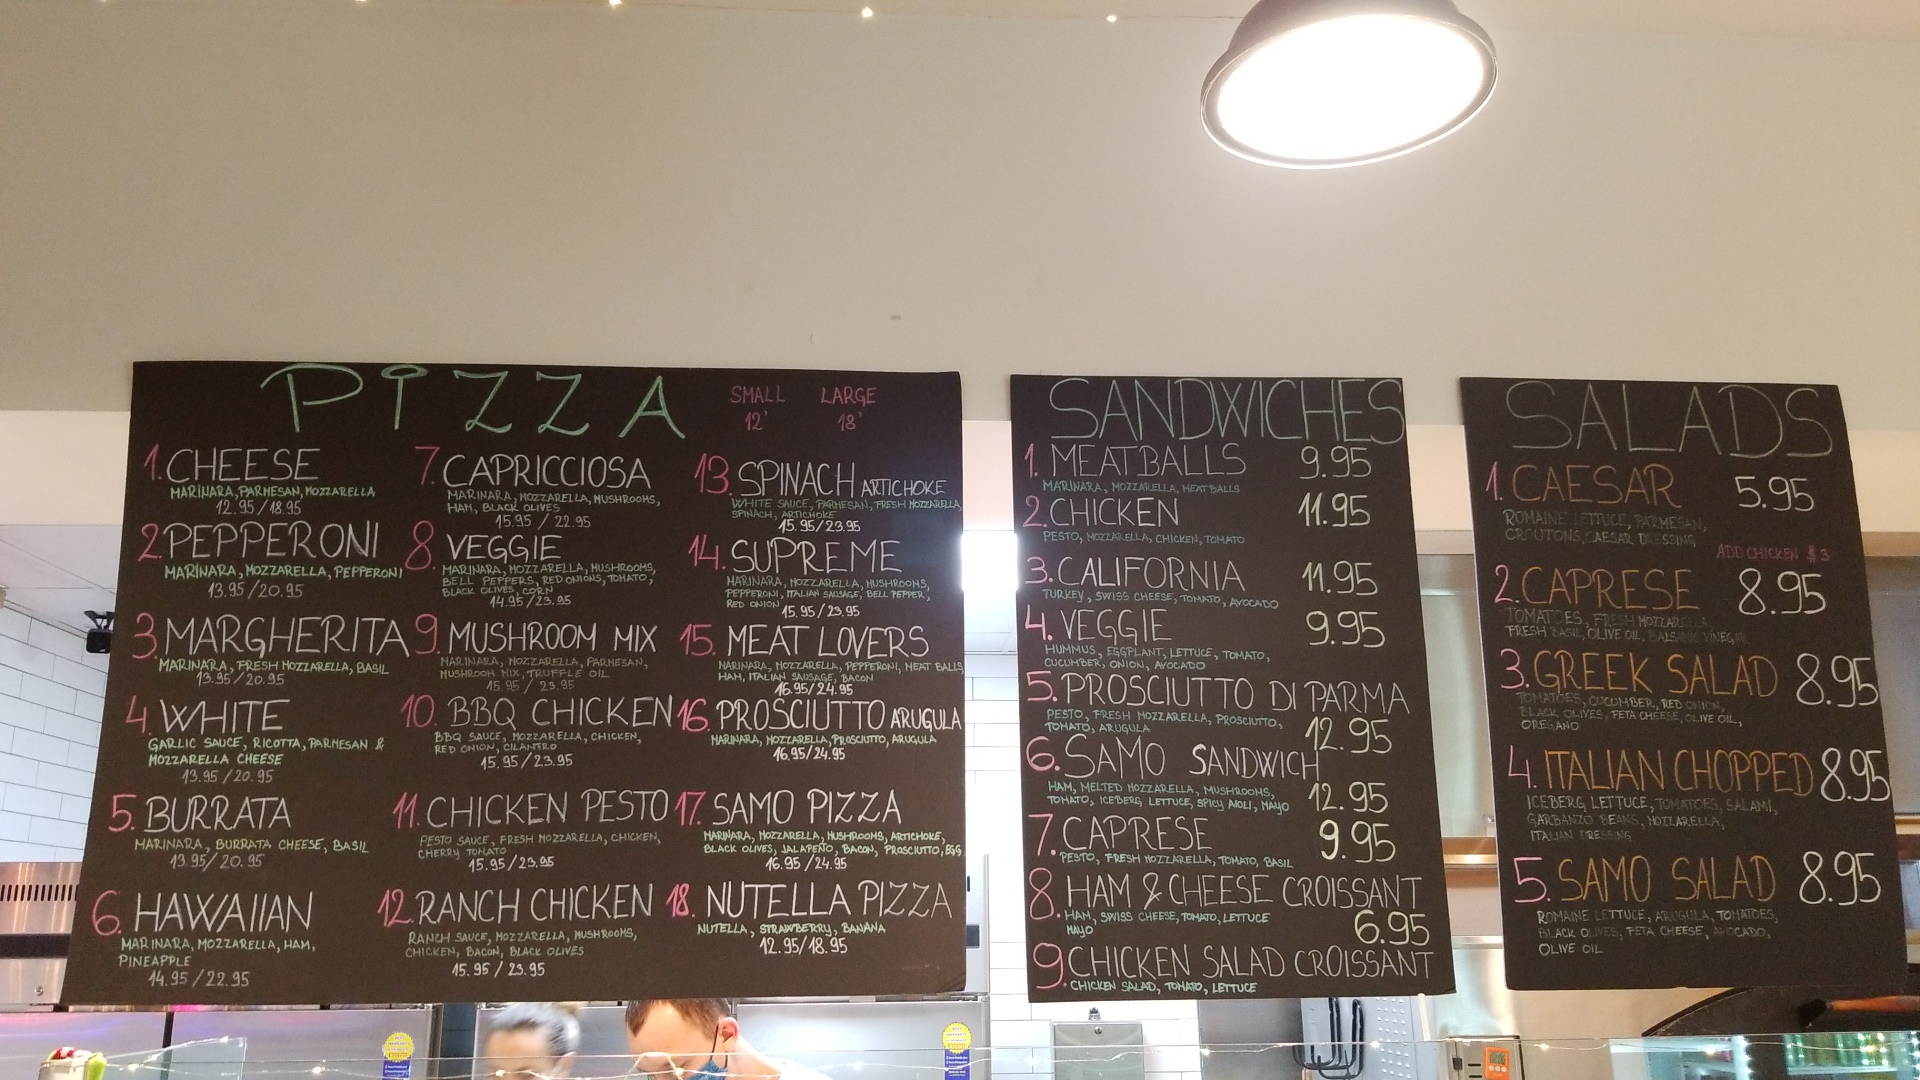 PIZZA
SMALL LARGE
12' 18'
1. CHEESE
MARINARA, PARMESAN, MOZZARELLA
12.95/18.95
2. PEPPERONI
MARINARA, MOZZARELLA, PEPPERONI
13.95/20.95
3. MARGHERITA
MARINARA, FRESH MOZZARELLA, BASIL
13.95/20.95
4. WHITE
GARLIC SAUCE, RICOTTA, PARMESAN &
MOZZARELLA CHEESE
13.95/20.95
5. BURRATA
MARINARA, BURRATA CHEESE, BASIL
13.95/20.95
6. HAWAIIAN
MARINARA, MOZZARELLA, HAM,
PINEAPPLE
14.95/22.95
7. CAPRICCIOSA
MARINARA, MOZZARELLA, MUSHROOMS,
HAM, BLACK OLIVES
15.95/22.95
8. VEGGIE
MARINARA, MOZZARELLA, MUSHROOMS,
BELL PEPPERS, RED ONIONS, TOMATO,
BLACK OLIVES, CORN
14.95/23.95
9. MUSHROOM MIX
MARINARA, MOZZARELLA, PARMESAN,
MUSHROOM MIX, TRUFFLE OIL
15.95/23.95
10. BBQ CHICKEN
BBQ SAUCE, MOZZARELLA, CHICKEN,
RED ONION, CILANTRO
15.95/23.95
11. CHICKEN PESTO
PESTO SAUCE, FRESH MOZZARELLA, CHICKEN,
CHERRY TOMATO
15.95/23.95
12. RANCH CHICKEN
RANCH SAUCE, MOZZARELLA, MUSHROOMS,
CHICKEN, BACON, BLACK OLIVES
15.95/23.95
13. SPINACH ARTICHOKE
WHITE SAUCE, PARMESAN, FRESH MOZZARELLA,
SPINACH, ARTICHOKE
15.95/23.95
14. SUPREME
MARINARA, MOZZARELLA, MUSHROOMS,
PEPPERONI, ITALIAN SAUSAGE, BELL PEPPER,
RED ONION
15.95/23.95
15. MEAT LOVERS
MARINARA, MOZZARELLA, PEPPERONI, MEAT BALLS
HAM, ITALIAN SAUSAGE, BACON
16.95/24.95
16. PROSCIUTTO ARUGULA
MARINARA, MOZZARELLA, PROSCIUTTO, ARUGULA
16.95/24.95
17. SAMO PIZZA
MARINARA, MOZZARELLA, MUSHROOMS, ARTICHOKE,
BLACK OLIVES, JALAPEÑO, BACON, PROSCIUTTO, EGG
16.95/24.95
18. NUTELLA PIZZA
NUTELLA, STRAWBERRY, BANANA
12.95/18.95
SANDWICHES
1. MEATBALLS 9.95
MARINARA, MOZZARELLA, MEATBALLS
2. CHICKEN 11.95
PESTO, MOZZARELLA, CHICKEN, TOMATO
3. CALIFORNIA 11.95
TURKEY, SWISS CHEESE, TOMATO, AVOCADO
4. VEGGIE 9.95
HUMMUS, EGGPLANT, LETTUCE, TOMATO,
CUCUMBER, ONION, AVOCADO
5. PROSCIUTTO DI PARMA
PESTO, FRESH MOZZARELLA, PROSCIUTTO,
TOMATO, ARUGULA 12.95
6. SAMO SANDWICH
HAM, MELTED MOZZARELLA, MUSHROOMS,
TOMATO, ICEBERG LETTUCE, SPICY AIOLI, MAYO 12.95
7. CAPRESE 9.95
PESTO, FRESH MOZZARELLA, TOMATO, BASIL
8. HAM & CHEESE CROISSANT
HAM, SWISS CHEESE, TOMATO, LETTUCE
MAYO 6.95
9. CHICKEN SALAD CROISSANT
CHICKEN SALAD, TOMATO, LETTUCE
SALADS
1. CAESAR 5.95
ROMAINE LETTUCE, PARMESAN,
CROUTONS, CAESAR DRESSING
ADD CHICKEN $3
2. CAPRESE 8.95
TOMATOES, FRESH MOZZARELLA,
FRESH BASIL, OLIVE OIL, BALSAMIC VINEGAR
3. GREEK SALAD 8.95
TOMATOES, CUCUMBER, RED ONION,
BLACK OLIVES, FETA CHEESE, OLIVE OIL,
OREGANO
4. ITALIAN CHOPPED 8.95
ICEBERG LETTUCE, TOMATOES, SALAMI,
GARBANZO BEANS, MOZZARELLA,
ITALIAN DRESSING
5. SAMO SALAD 8.95
ROMAINE LETTUCE, ARUGULA, TOMATOES,
BLACK OLIVES, FETA CHEESE, AVOCADO,
OLIVE OIL